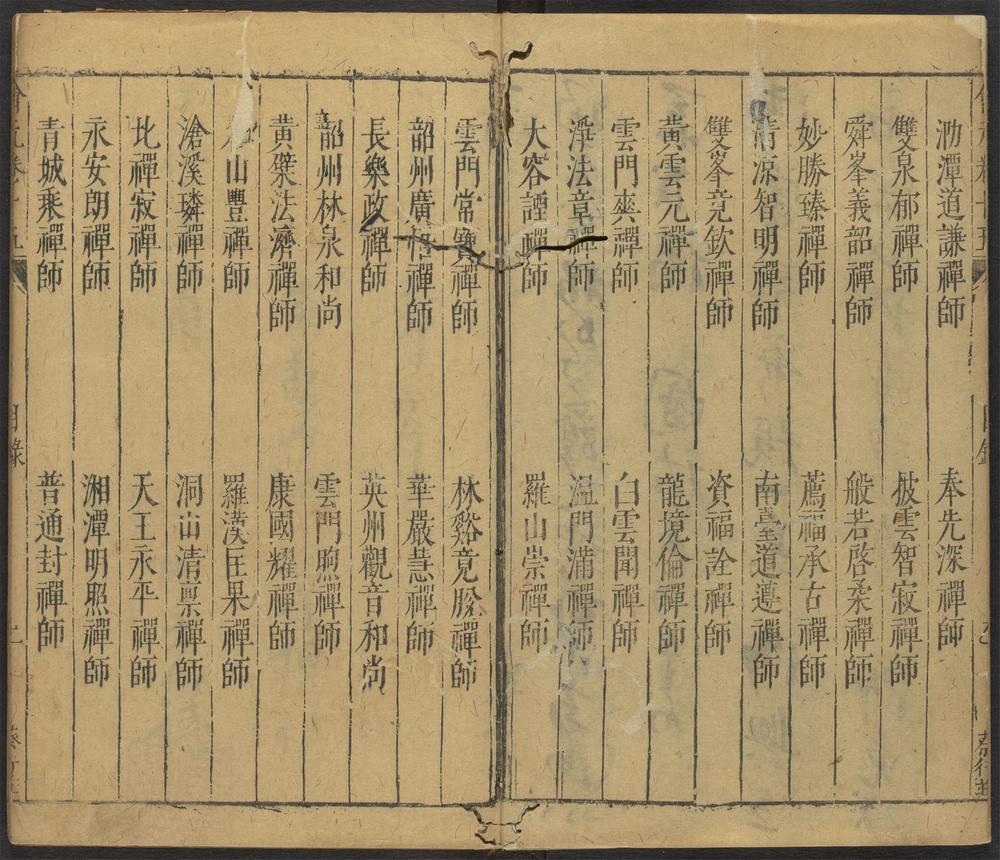 泐潭道謙禪師 奉先深禪師
雙泉郁禪師 披雲智寂禪師
舜峯義韶禪師 般若啓柔禪師
妙勝臻禪師 薦福承古禪師
清凉智明禪師 南臺道遵禪師
雙峯竟欽禪師 資福詮禪師
黃雲元禪師 龍境倫禪師
雲門爽禪師 白雲聞禪師
淨法章禪師 温門滿禪師
大容諲禪師 羅山崇禪師
雲門常寶禪師 林谿竟脫禪師
韶州廣悟禪師 華嚴慧禪師
長樂政禪師 英州觀音和尚
韶州林泉和尚 雲門煦禪師
黃檗法濟禪師 康國耀禪師
山豐禪師 羅漢匡果禪師
滄溪璘禪師 洞山清稟禪師
北禪寂禪師 天王永平禪師
永安朗禪師 湘潭明照禪師
青城乘禪師 普通封禪師
目錄